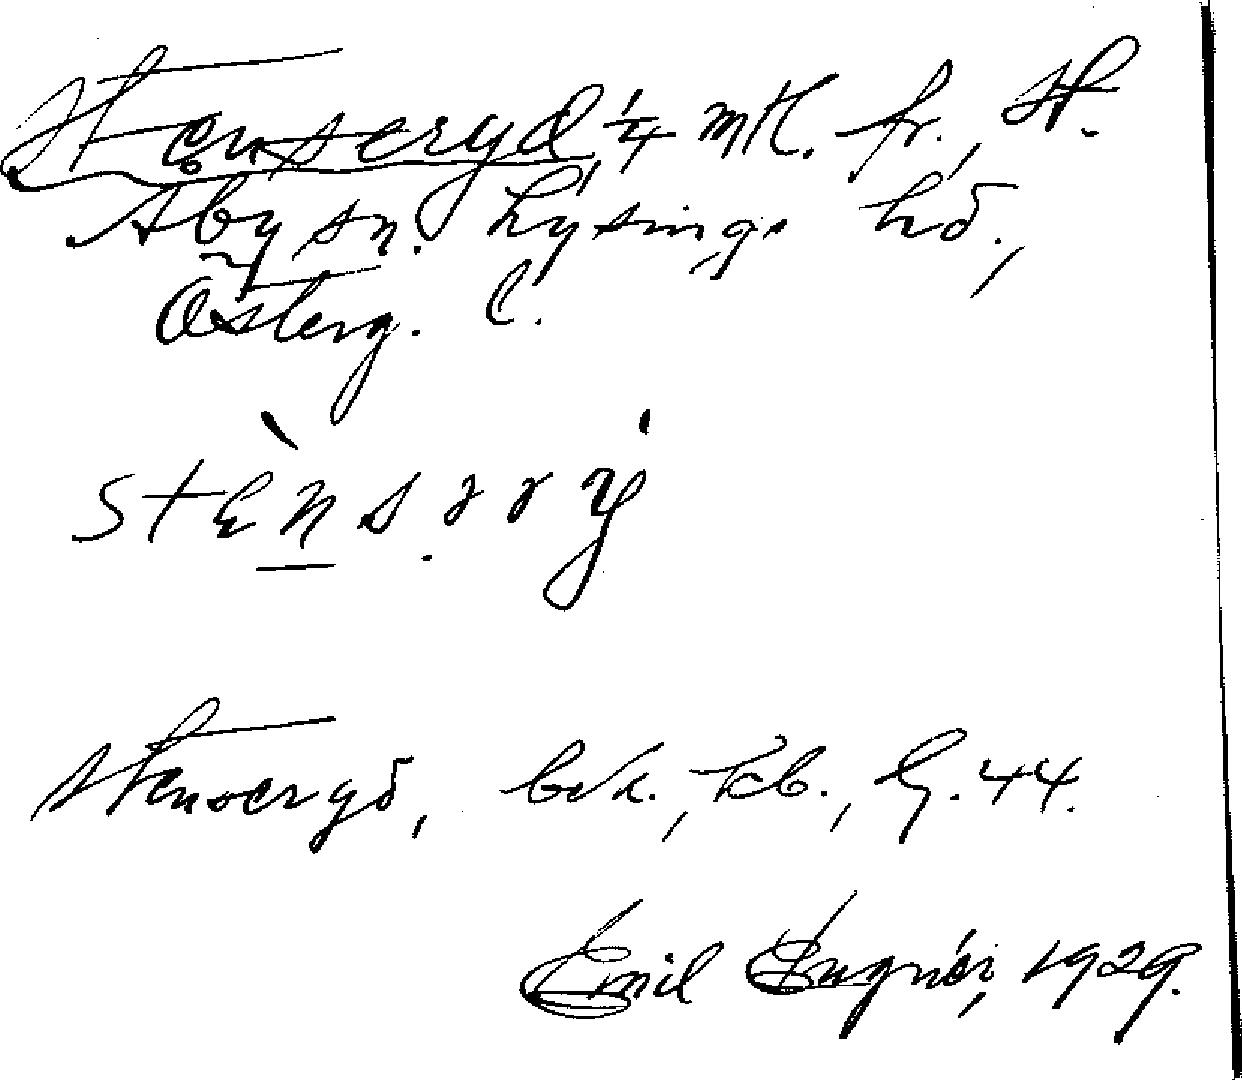 Stenseryd, 1/4 mtl. fr., St.
Åby sn. Lysings hd.,
Österg. l.
stɛ̀nsəry
Stenseryd, bok., kb., G. 44.
Emil 1929.